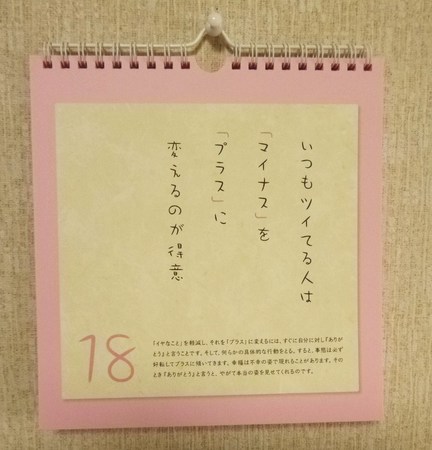 いつもツイてる人は
「マイナス」を
「プラス」に
変えるのが得意
18
「イヤなこと」を軽減し、それを「プラス」に変えるには、すぐに自分に対し『ありが
とう』と言うことです。そして、何らかの具体的な行動をとる。すると、事態は必ず
好転してプラスに傾いてきます。幸福は不幸の姿で現れることがあります。その
とき『ありがとう』と言うと、やがて本当の姿を見せてくれるのです。